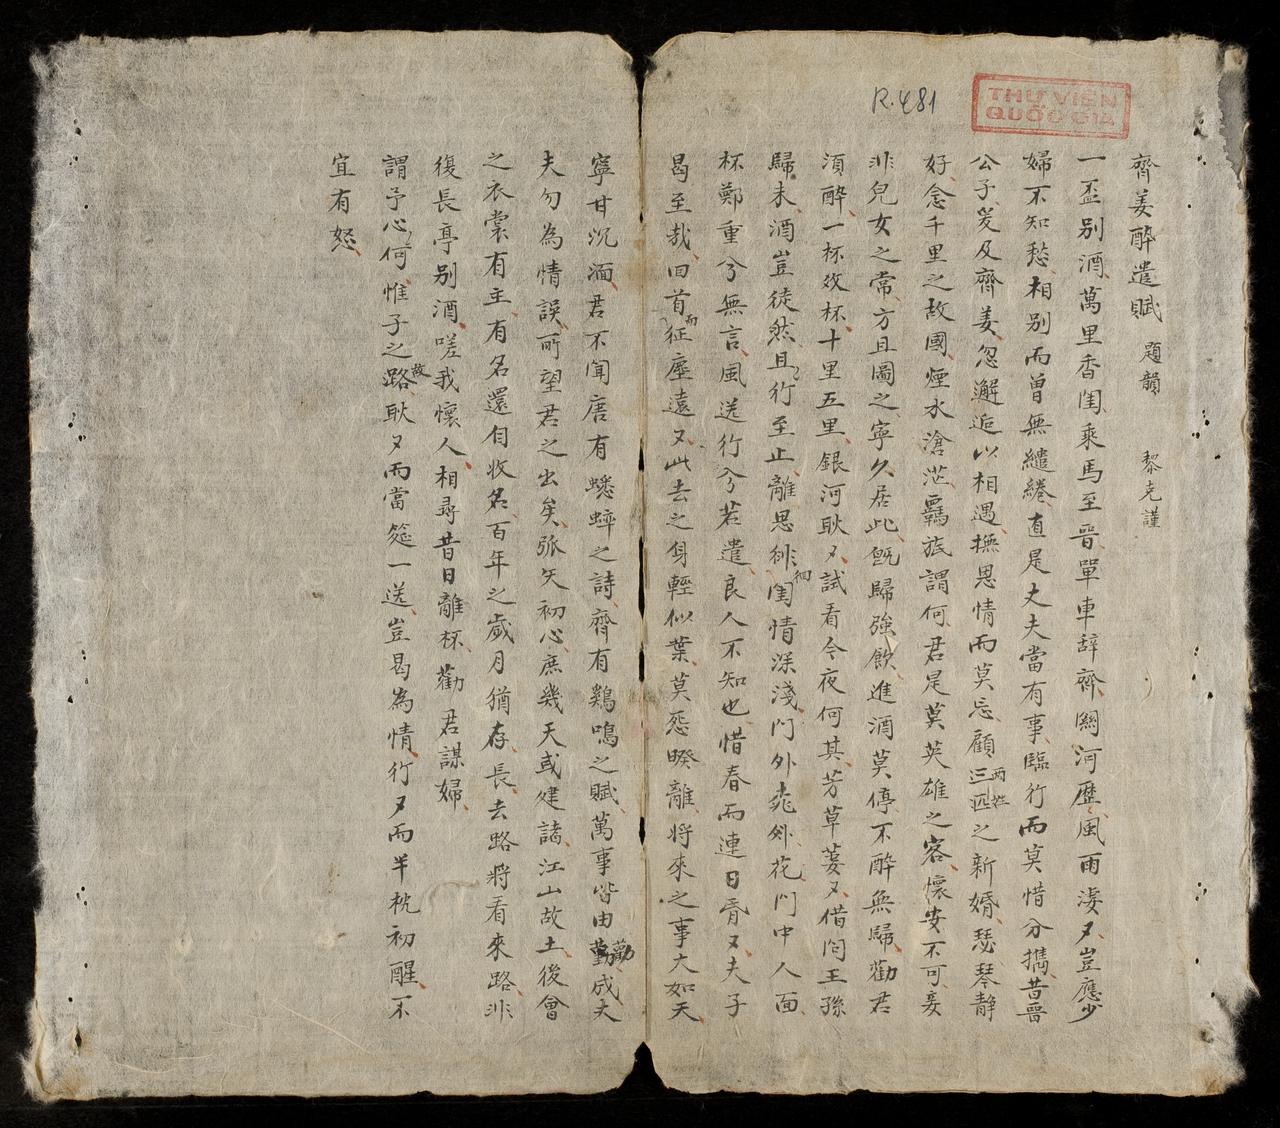 R.481
THƯ VIỆN
QUỐC GIA
齊姜醉遣賦 題韻 黎克謹
一盃別酒萬里香閨乘馬至晋單車辞齊關河歷風雨凄〻豈應少
婦不知愁相別而曾無繾綣直是丈夫當有事臨行而莫惜分攜昔晋
公子爰及齊姜忽邂逅以相遇撫恩情而莫忘顧两姓之新婚瑟琴静
好念千里之故國煙水滄茫羈旅謂何君是莫英雄之客懷安不可妾
非兒女之常方且圖之寧久居此旣歸強飲進酒莫停不醉無歸勸君
須醉一杯㪅杯十里五里銀河耿〻試看今夜何其芳草萋〻借问王孫
歸未酒豈徒然且行且止離思徘徊閨情深淺门外花外花门中人面
杯鄭重兮無言風送行兮若遣良人不知也惜春而連日昏〻夫子
曷至哉回首而征塵遠〻此去之身輕似葉莫怨暌離将來之事大如天
寧甘沉湎君不闻唐有蟋蟀之詩齊有鷄鳴之賦萬事皆由勸成丈
夫勿為情誤所望君之出矣弧矢初心庶幾天或建諸江山故土後會
之衣裳有主有名還自收名百年之歲月猶存長去路将看來路非
復長亭別酒嗟我懷人相尋昔日離杯勸君謀婦
謂予心何惟子之故路耿〻而當筵一送豈曷為情行〻而半枕初醒不
宜有怒